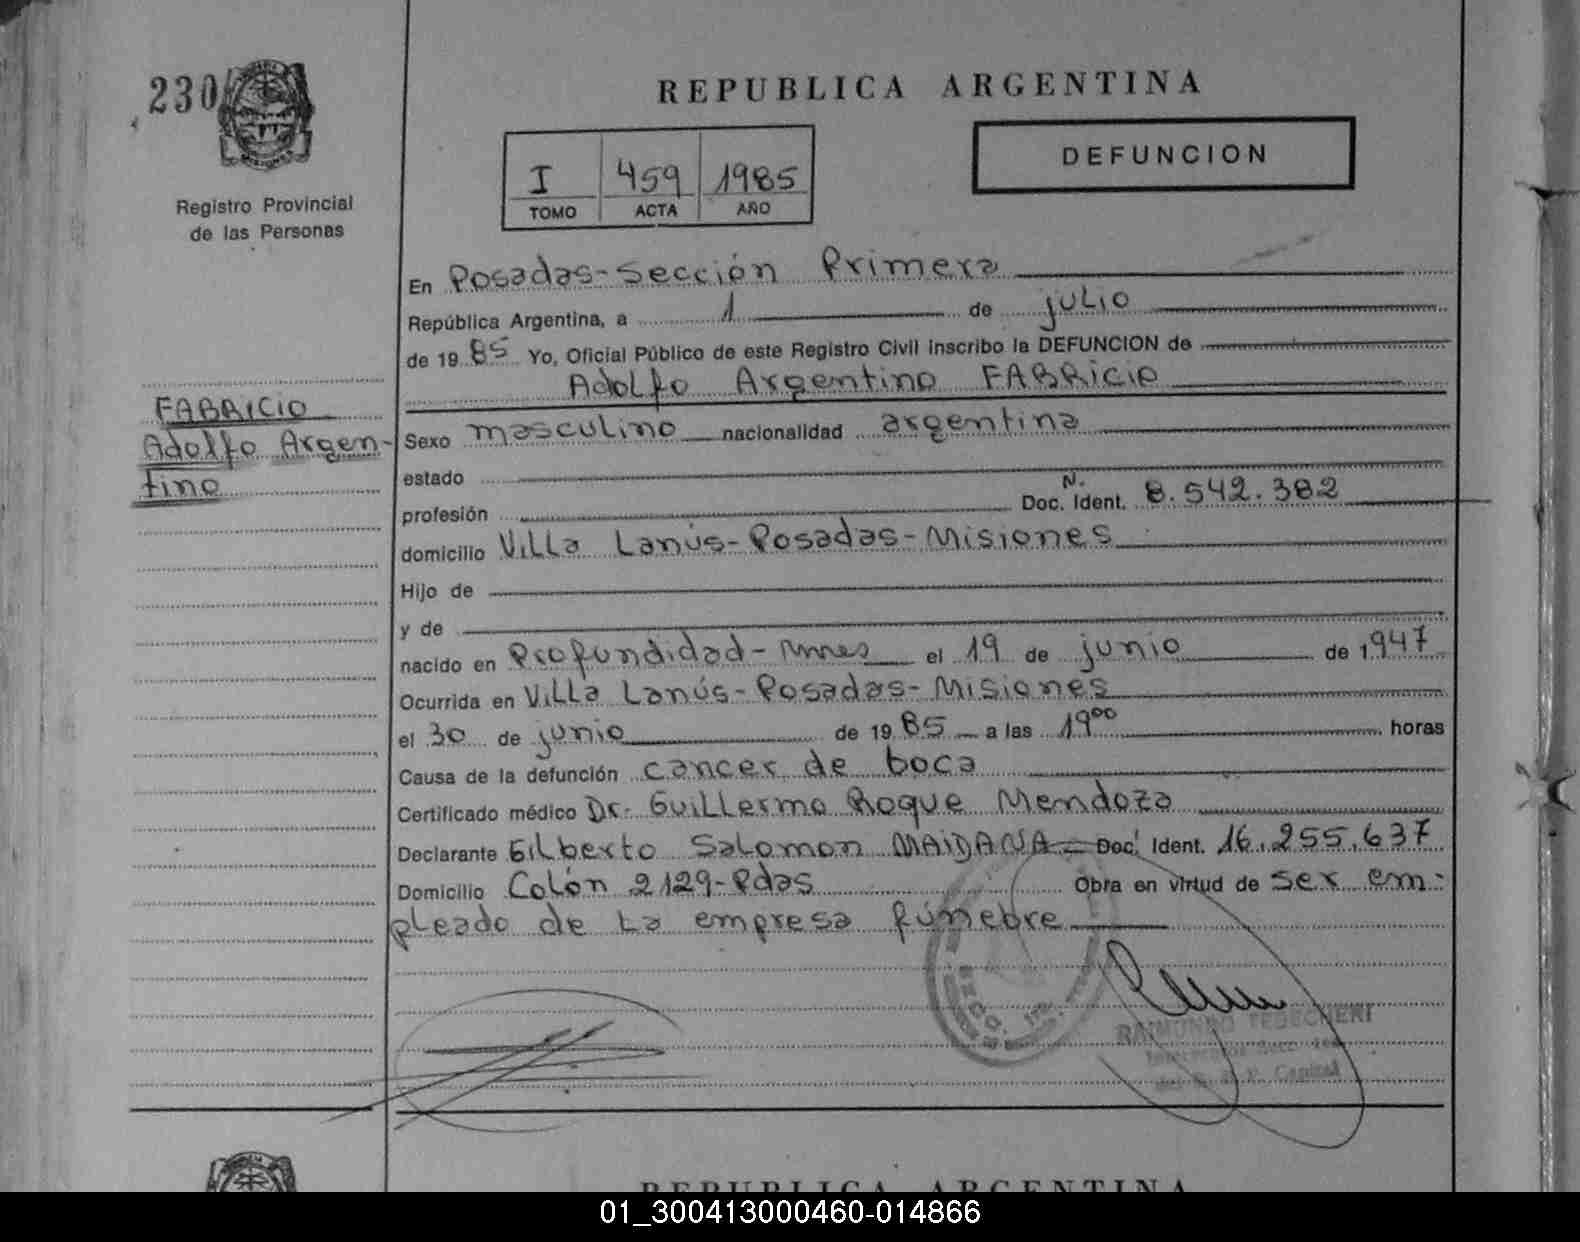 230
REPUBLICA ARGENTINA
DEFUNCION
I 459 1985
TOMO ACTA AÑO
Registro Provincial
de las Personas
En Posadas-Sección Primera
República Argentina, a 1 de julio
de 1985 Yo, Oficial Público de este Registro Civil inscribo la DEFUNCION de
Adolfo Argentino FABRICIO
FABRICIO
Adolfo Argen-
tino
Sexo masculino nacionalidad argentina
estado
profesión N. Doc. Ident. 8.542.382
domicilio Villa Lanús-Posadas-Misiones
Hijo de
y de
nacido en Profundidad-Mnes el 19 de junio de 1947
Ocurrida en Villa Lanús-Posadas-Misiones
el 30 de junio de 1985 a las 19⁰⁰ horas
Causa de la defunción cancer de boca
Certificado médico Dr. Guillermo Roque Mendoza
Declarante Gilberto Salomon MAIDANA Doc. Ident. 16.255.637
Domicilio Colón 2129-Pdas Obra en virtud de ser em-
pleado de la empresa fúnebre
RAIMUNDO
Capital
REPUBLICA ARGENTINA
01_300413000460-014866